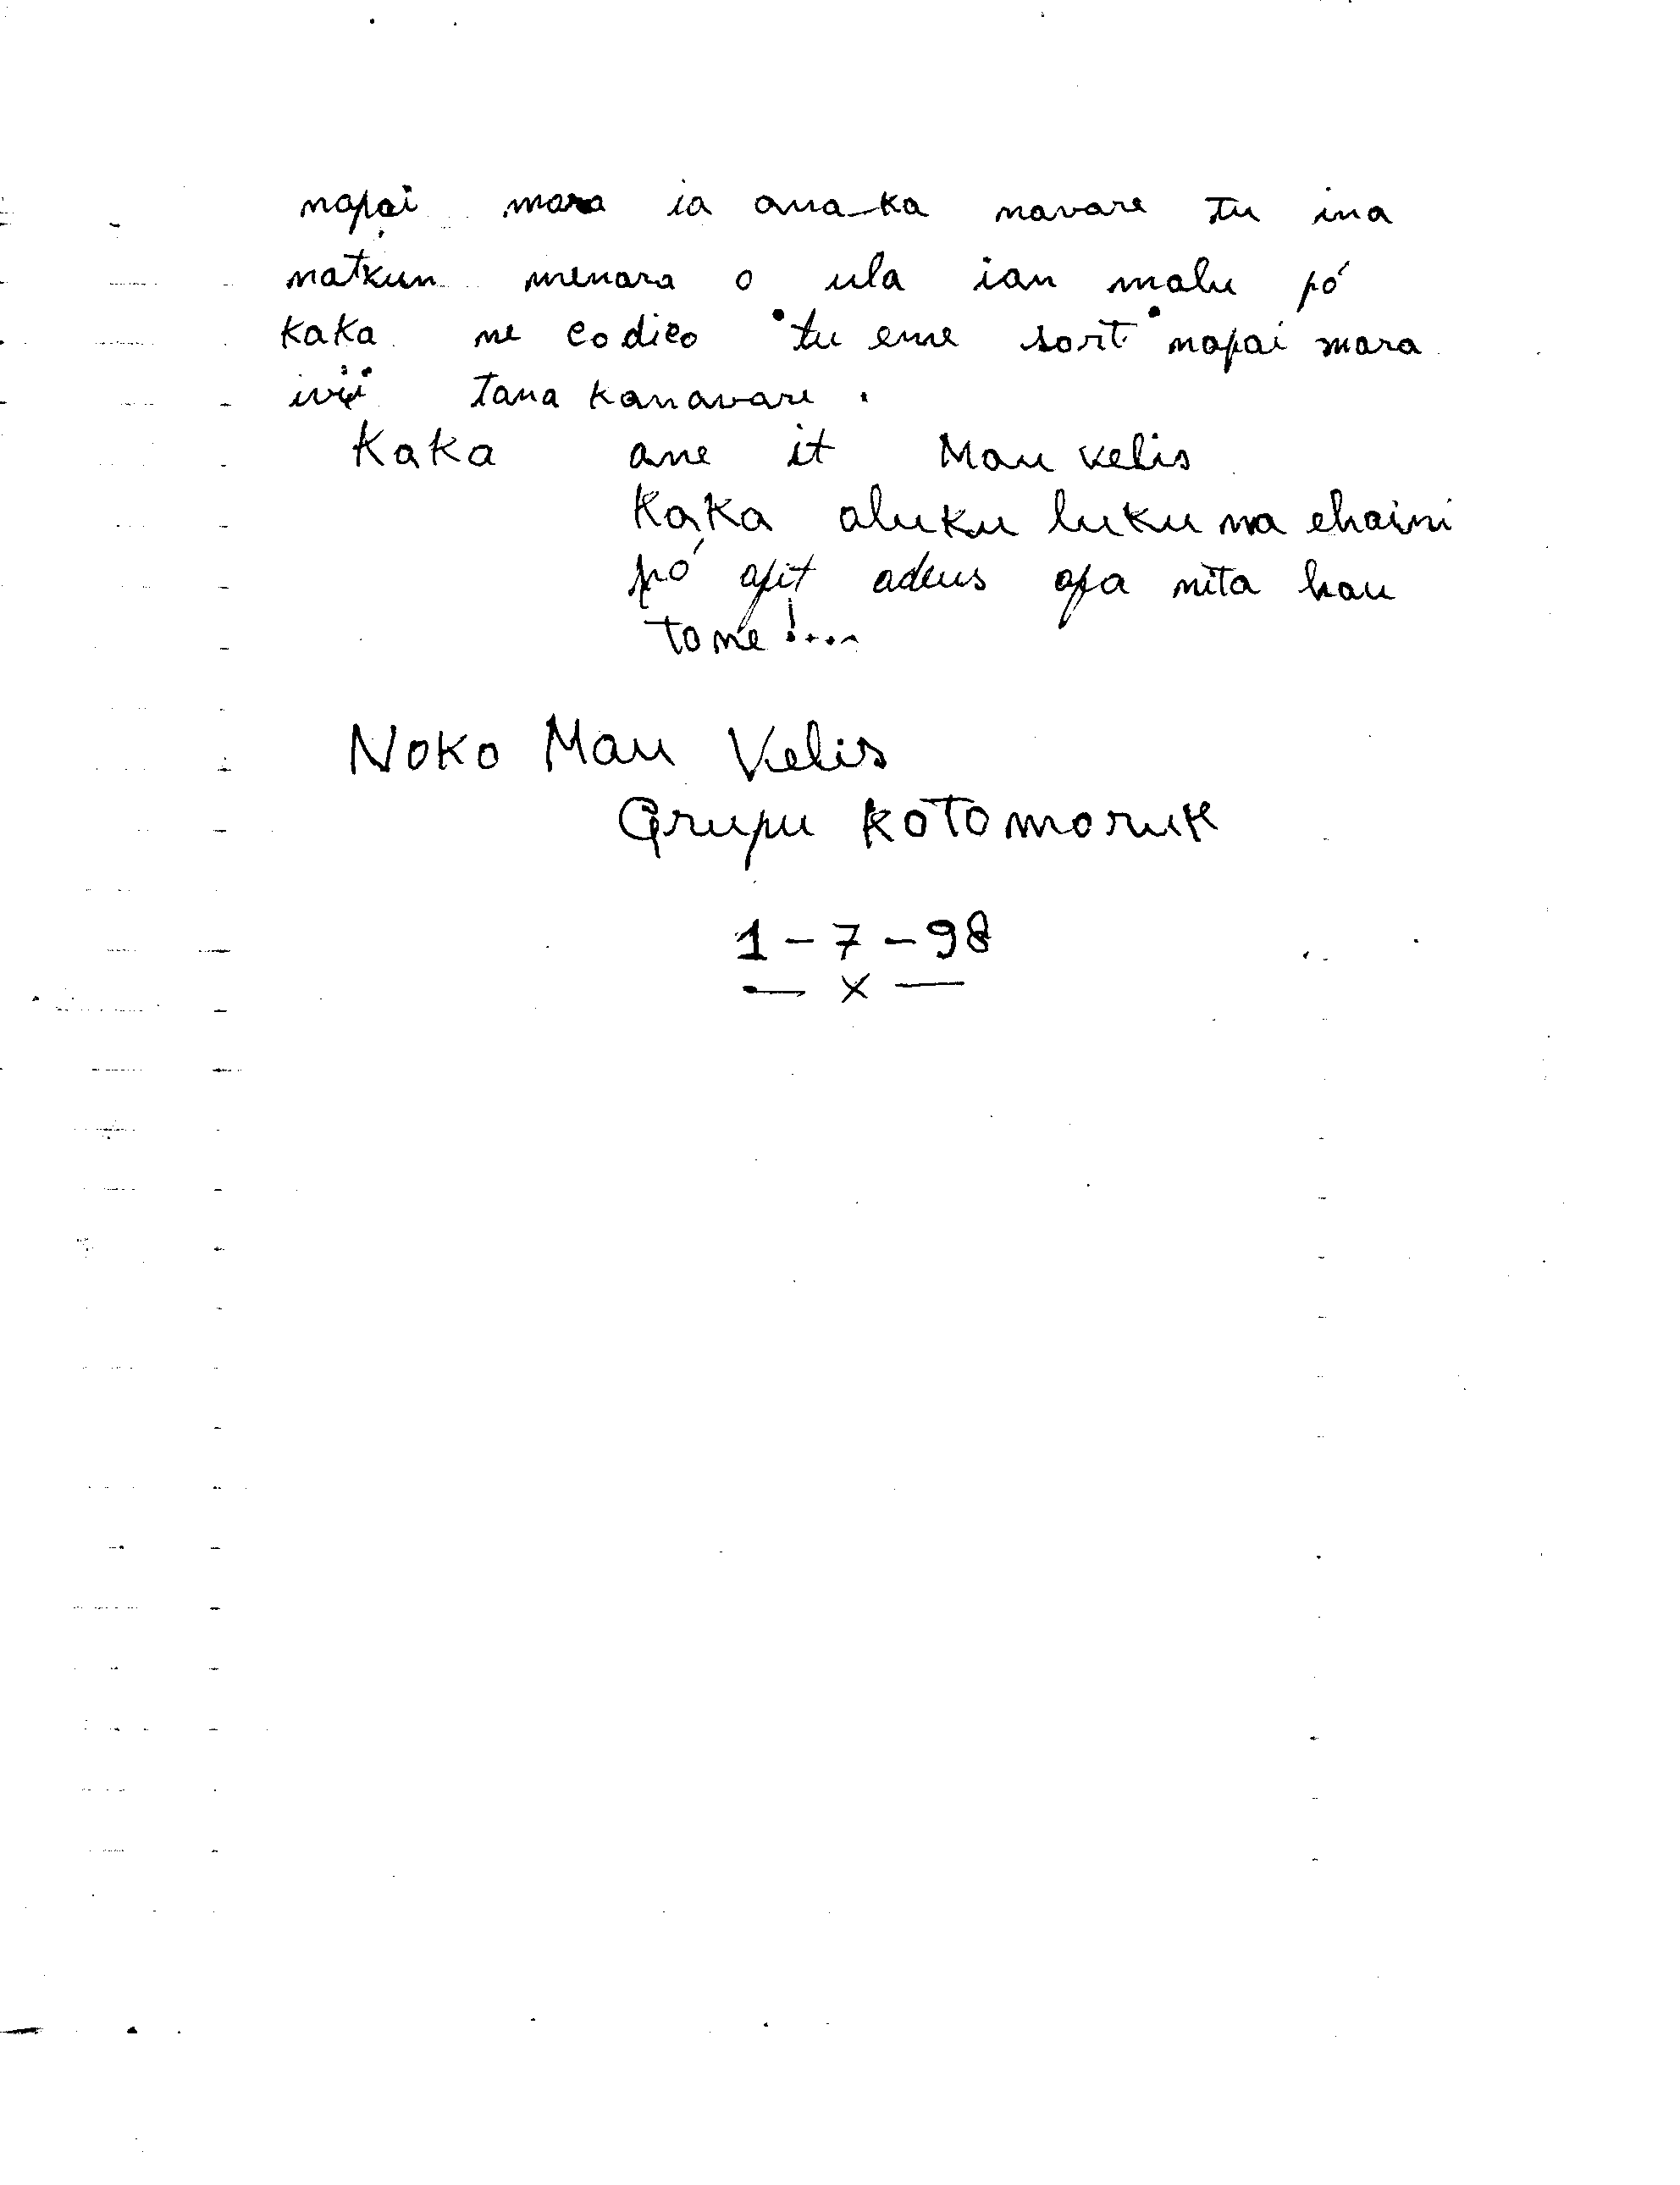 napai mara ia ana-ka navare tu ina
natxun menara o ula ian malu pó
kaka ne codico "tu eme sort" napai mara
tana kanavare.
Kaka ane it Mau Kelis
Kaka aluku luku na ehaini
pó apit adeus apa nita hau
tone!....
Noko Mau Velis
Grupu kotomoruk
1-7-98
— x —